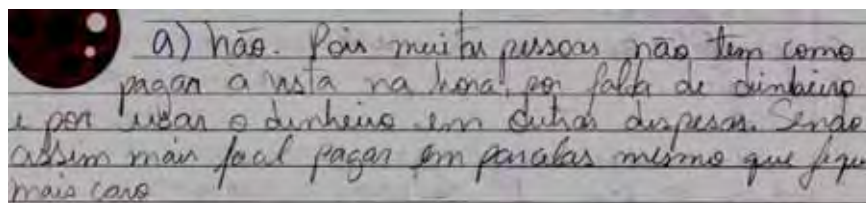 a) não. Pois muitas pessoas não tem como
pagar a vista na hora, por falta de dinheiro
e por usar o dinheiro em outras despesas. Sendo
assim mais facil pagar em parcelas mesmo que fique
mais caro